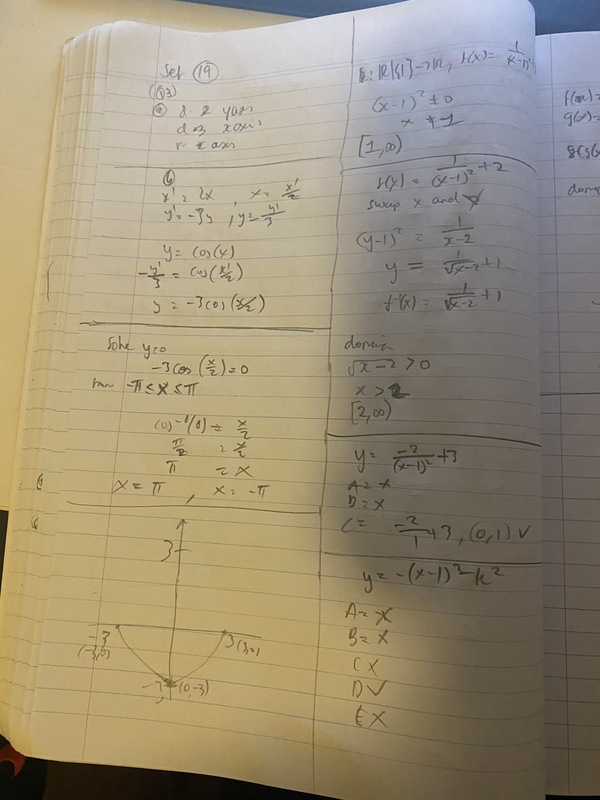 Set 19
Q3
a d 2 y axis
d 3 x axis
r x axis
b
x' = 2x , x = x'/2
y' = -3y , y = y'/3
y = cos(x)
-y'/3 = cos(x'/2)
y = -3cos(x/2)
Solve y=0
-3cos(x/2)=0
-π≤x≤π
cos⁻¹(0) = x/2
π/2 = x/2
π = x
x = π , x = -π
3
-3
(-3,0)
3 (3,0)
-3 (0,-3)
h: R\{1}→R, f(x) = 1/(x-1)²
(x-1)² ≠ 0
x ≠ 1
[1,∞)
f(x) = 1/(x-1)² + 2
swap x and y
(y-1)² = 1/(x-2)
y = 1/√(x-2) + 1
f⁻¹(x) = 1/√(x-2) + 1
domain
√(x-2) > 0
x > 2
[2,∞)
y = -2/(x-1)² + 3
A = x
B = x
C = -2/1 + 3 , (0,1) ✓
y = -(x-1)² - k²
A = x
B = x
C x
D ✓
E x
f(x) =
g(x) =